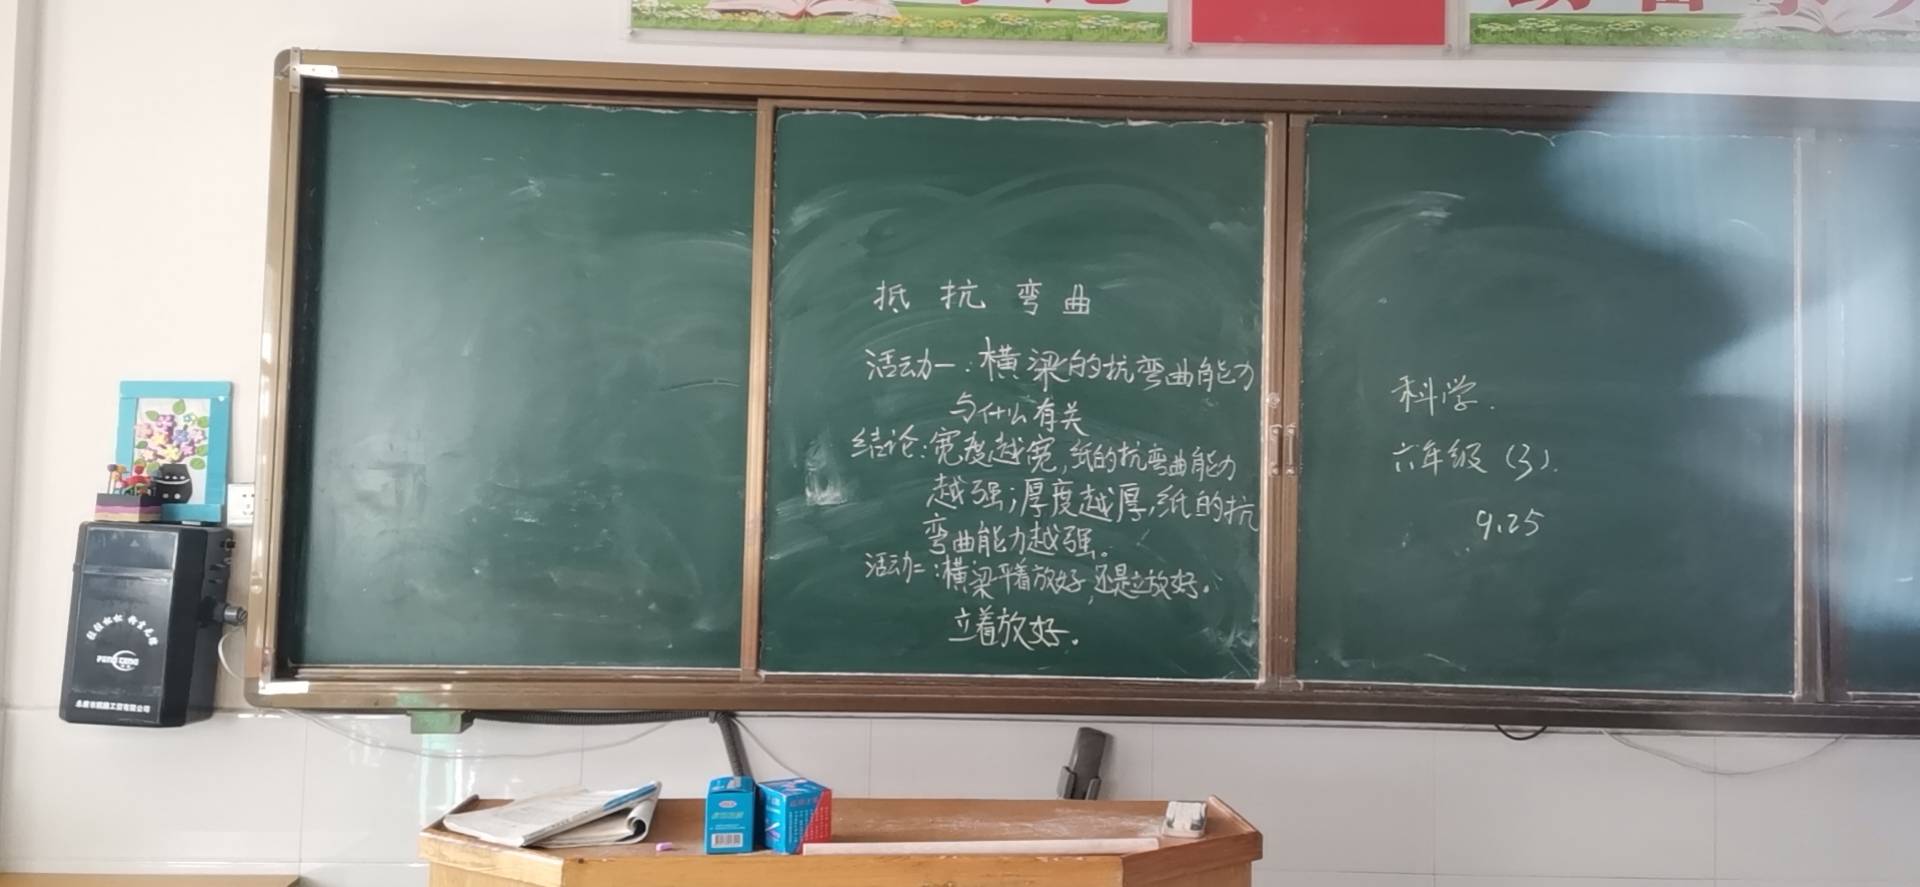 抵抗弯曲
活动一:横梁的抗弯曲能力
与什么有关
结论:宽度越宽,纸的抗弯曲能力
越强;厚度越厚,纸的抗
弯曲能力越强。
活动二:横梁平着放好,还是立放好。
立着放好。
科学.
六年级(3).
9.25